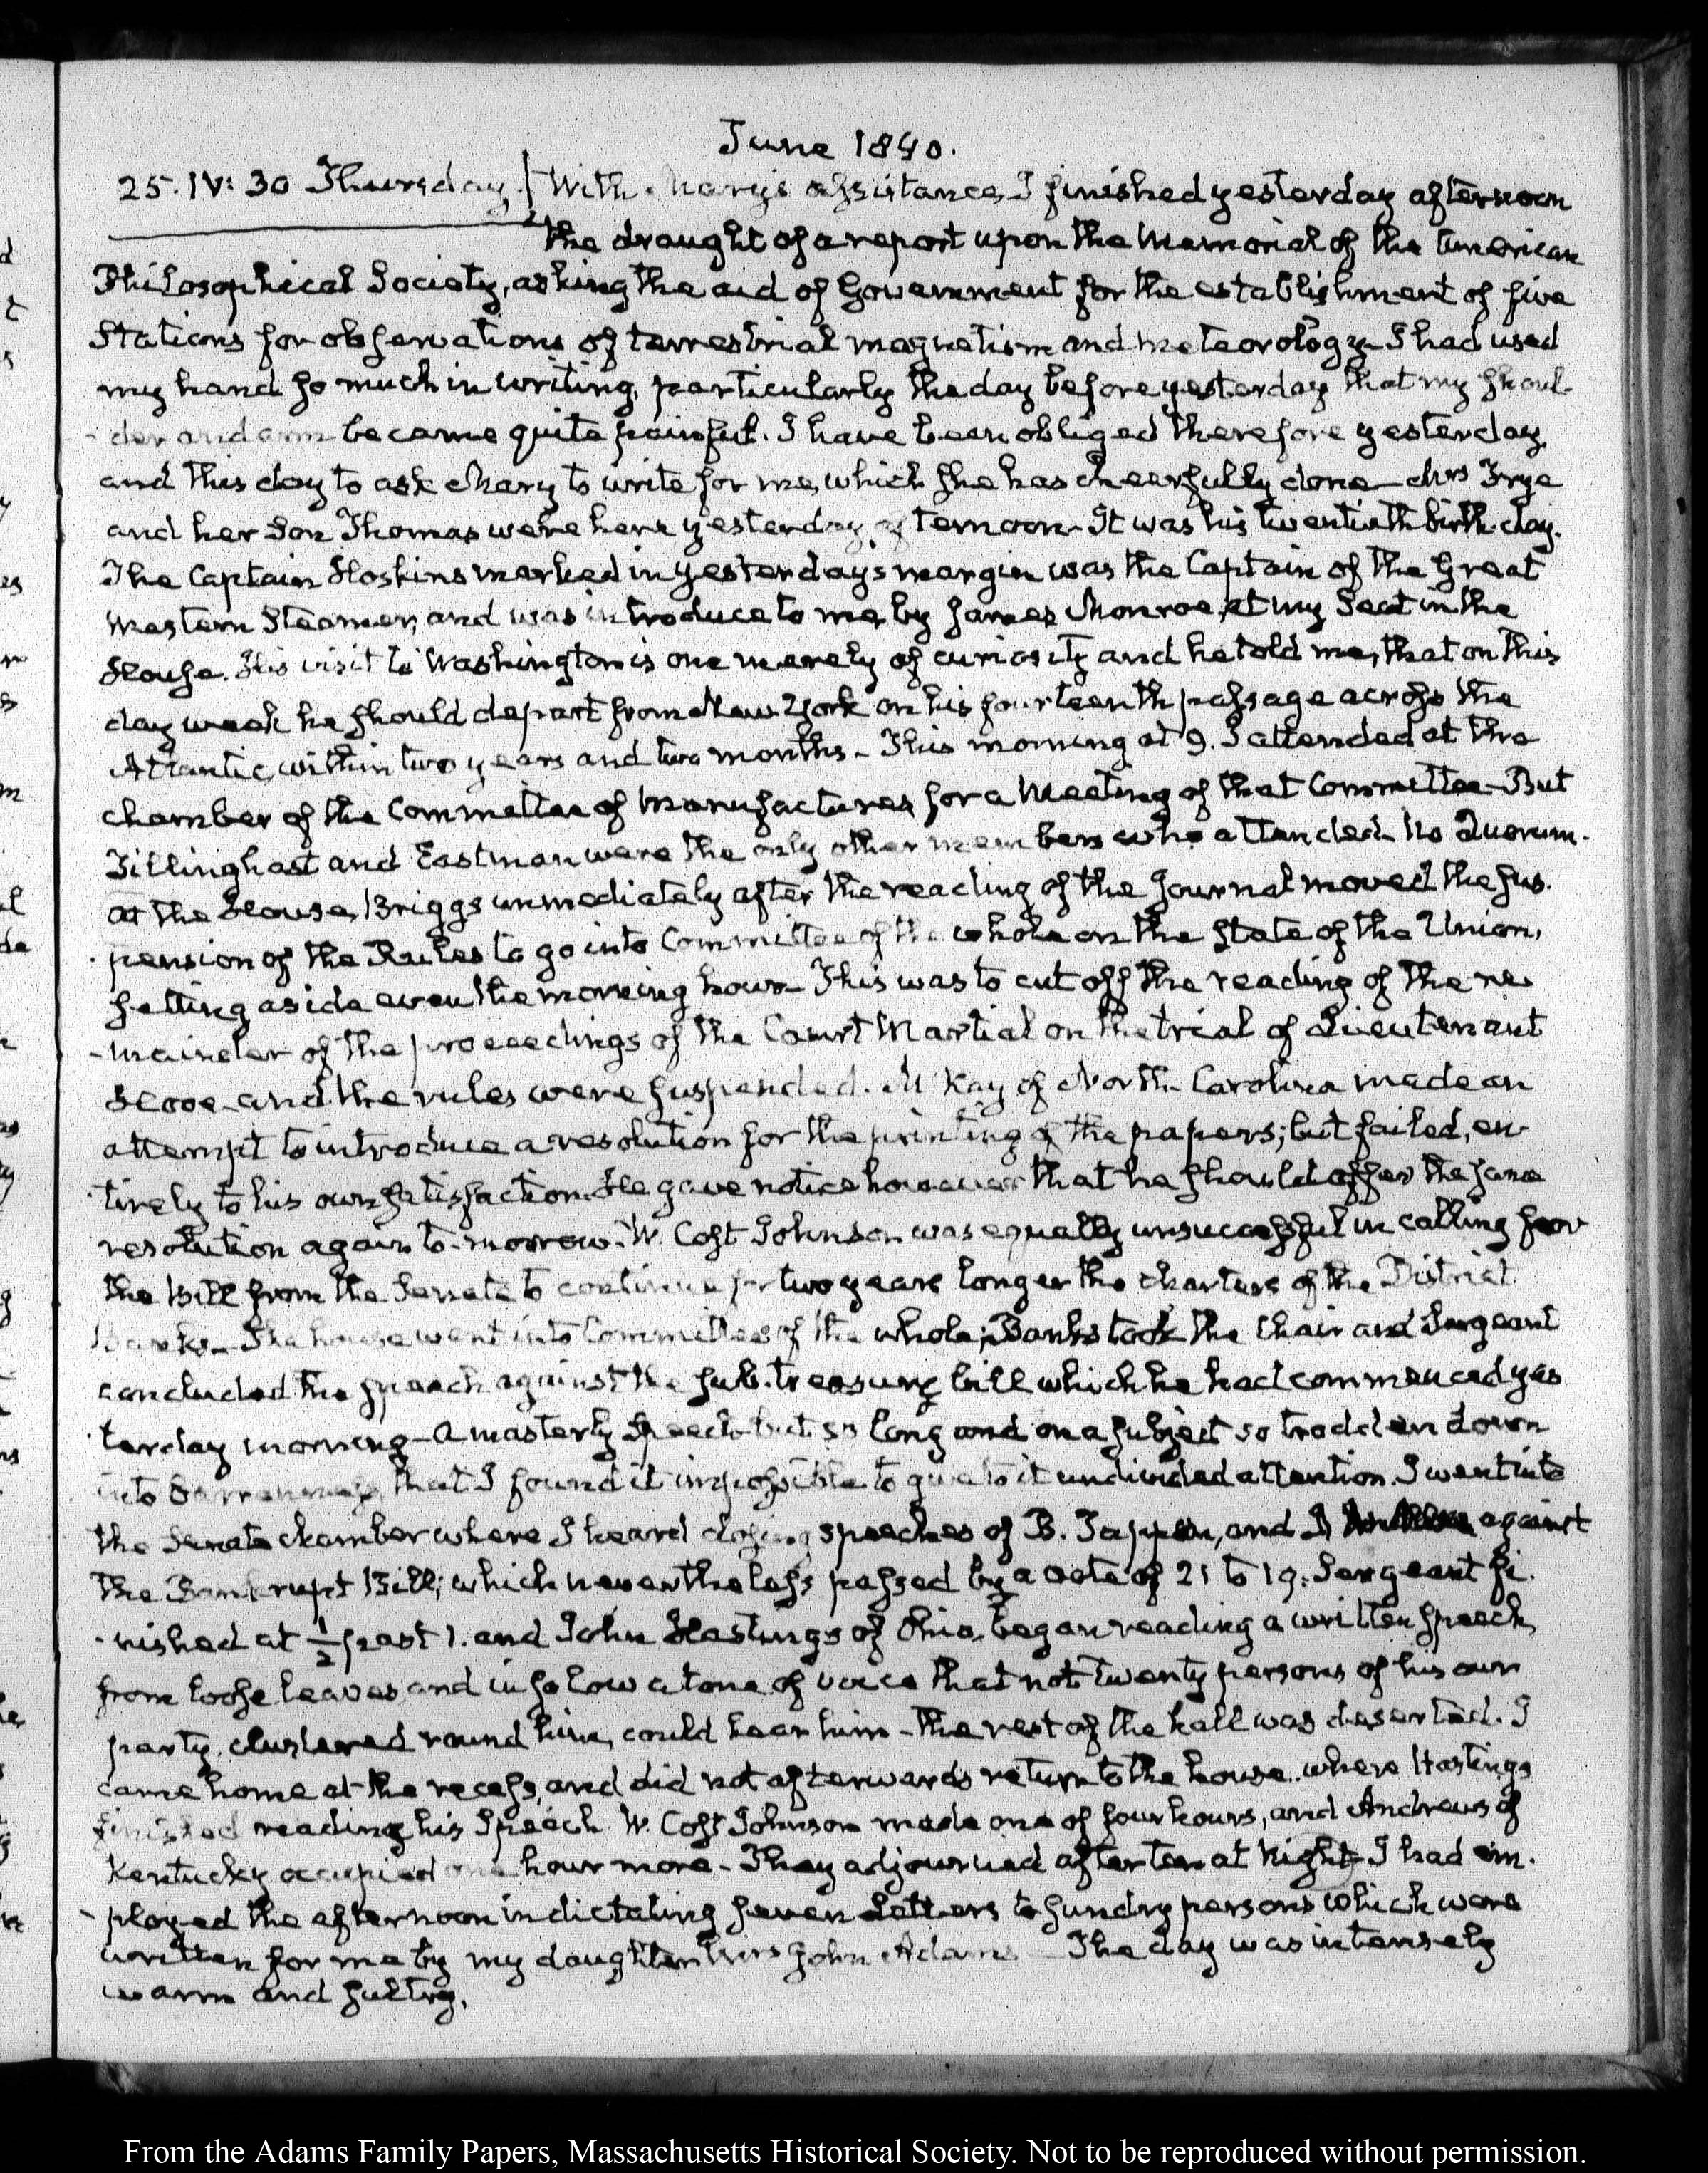 June 1840.
25. IV: 30 Thursday. With Mary's assistance, I finished yesterday afternoon
the draught of a report upon the Memorial of the American
Philosophical Society, asking the aid of Government for the establishment of five
Stations for observations of terrestrial magnetism and meteorology. I had used
my hand so much in writing, particularly the day before yesterday that my shoul-
-der and arm became quite painful. I have been obliged therefore yesterday
and this day to ask Mary to write for me, which she has cheerfully done— Mrs Frye
and her Son Thomas were here yesterday afternoon— It was his twentieth birth-day.
The Captain Hoskins marked in yesterday's margin was the Captain of the Great
Western Steamer, and was introduce to me, by James Monroe, at my Seat in the
House. His visit to Washington is one merely of curiosity and he told me, that on this
day week he should depart from New-York on his fourteenth passage across the
Atlantic, within two years and two months— This morning at 9. I attended at the
chamber of the Committee of Manufactures for a Meeting of that Committee— But
Tillinghast and Eastman were the only other members who attended— No Quorum.
At the House, Briggs immediately after the reading of the Journal moved the sus-
-pension of the Rules to go into Committee of the whole on the State of the Union,
setting aside even the morning hour— This was to cut off the reading of the re-
-mainder of the proceedings of the Court Martial on the trial of Lieutenant
Hooe— and the rules were suspended. McKay of North-Carolina made an
attempt to introduce a resolution for the printing of the papers; but failed, en-
-tirely to his own satisfaction. He gave notice however that he should offer the same
resolution again to-morrow— W. Cost Johnson was equally unsuccessful in calling for
the Bill from the Senate to continue for two years longer the charters of the District
Banks— The house went into Committee of the whole; Banks took the Chair and Sergeant
concluded the speech against the sub-treasury bill which he had commenced yes-
-terday morning— A masterly Speech— but so long and on a subject so trodden down
into barrenness, that I found it impossible to give to it undivided attention. I went into
the Senate chamber where I heard closing speeches of B. Tappan, and against
the Bankrupt Bill; which nevertheless passed by a vote of 21 to 19. Sergeant fi-
-nished at ½ past 1. and John Hastings of Ohio, began reading a written speech,
from loose leaves, and in so low a tone of voice that not twenty persons of his own
party, clustered round him, could hear him— the rest of the hall was deserted. I
came home at the recess, and did not afterwards return to the house.. where Hastings
finished reading his Speech. W. Cost Johnson made one of four hours, and Andrews of
Kentucky occupied one hour more— They adjourned after ten at Night— I had em-
-ployed the afternoon in dictating seven Letters to sundry persons which were
written for me by my daughter Mrs John Adams— The day was intensely
warm and sultry.
From the Adams Family Papers, Massachusetts Historical Society. Not to be reproduced without permission.